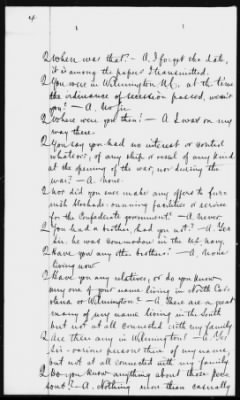 4
Q When was that? - A. I forget the date,
it is among the papers I transmitted.
Q You were in Wilmington N.C. at the time
the ordinance of secession passed, wasn't
you? - A. No sir
Q Where were you then? - A I was on my
way there.
Q You say you had no interest or control
whatever, of any ship or vessel of any kind
at the opening of the war, nor during the
war? - A. None.
Q Nor did you ever make any offers to fur-
nish blockade-running facilities or service
for the Confederate government? - A Never
Q You had a brother, had you not? - A. Yes
sir, he was commodore in the U.S. navy.
Q Have you any other brothers? - A. None
living now
Q Have you any relatives, or do you know
any one of your name living in North Car-
olina or Wilmington? - A There are a great
many of my name living in the South
but not at all connected with my family
Q Are there any in Wilmington? - A. Yes
Sir - various persons there of my name,
but not at all connected with my family
Q Do you know anything about those per-
sons? - A. Nothing more than casually